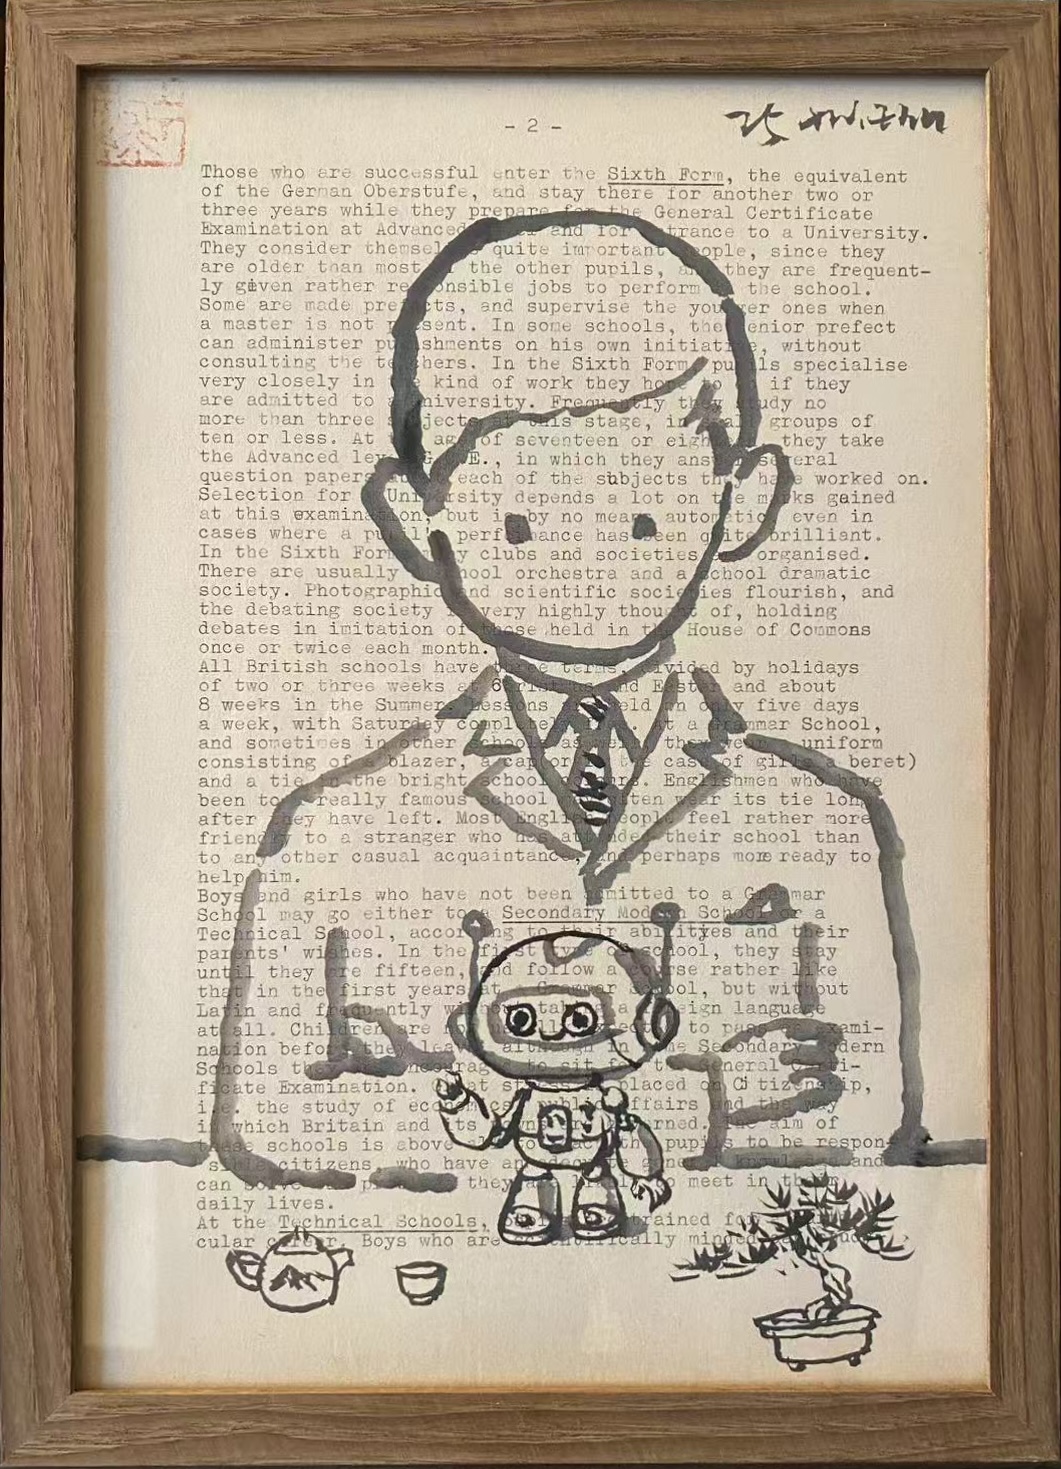 - 2 -
Those who are successful enter the Sixth Form, the equivalent
of the German Oberstufe, and stay there for another two or
three years while they prepare for the General Certificate
Examination at Advanced and for entrance to a University.
They consider themselves quite important people, since they
are older than most of the other pupils, and they are frequent-
ly given rather responsible jobs to perform the school.
Some are made prefects, and supervise the younger ones when
a master is not present. In some schools, the senior prefect
can administer punishments on his own initiative, without
consulting the teachers. In the Sixth Form pupils specialise
very closely in kind of work they hope to if they
are admitted to a University. Frequently they study no
more than three subjects at this stage, in small groups of
ten or less. At the age of seventeen or eighteen they take
the Advanced level G.C.E., in which they answer several
question papers about each of the subjects they have worked on.
Selection for University depends a lot on the marks gained
at this examination, but is by no means automatic even in
cases where a pupil's performance has been quite brilliant.
In the Sixth Form many clubs and societies are organised.
There are usually school orchestra and a school dramatic
society. Photographic and scientific societies flourish, and
the debating society is very highly thought of, holding
debates in imitation of those held in the House of Commons
once or twice each month.
All British schools have three terms, divided by holidays
of two or three weeks at Christmas and Easter and about
8 weeks in the Summer. Lessons are held on only five days
a week, with Saturday completely At a Grammar School,
and sometimes in other schools as well, they wear uniform
consisting of a blazer, a cap (or in the case of girls a beret)
and a tie in the bright school colours. Englishmen who have
been to a really famous school often wear its tie long
after they have left. Most English people feel rather more
friendly to a stranger who has attended their school than
to any other casual acquaintance, and perhaps more ready to
help him.
Boys and girls who have not been admitted to a Grammar
School may go either to a Secondary Modern School or a
Technical School, according to their abilities and their
parents' wishes. In the first type of school, they stay
until they are fifteen, and follow a course rather like
that in the first years at Grammar School, but without
Latin and frequently without taking a foreign language
at all. Children are not usually expected to pass exami-
nation before they leave, although in the Secondary Modern
Schools they encouraged to sit for the General Certi-
ficate Examination. stress placed on Citizenship,
i.e. the study of economics, public affairs and the way
in which Britain and its The aim of
these schools is above all to pupils to be respon-
sible citizens, who have an adequate general knowledge and
can solve they to meet in their
daily lives.
At the Technical Schools, trained for
cular career. Boys who are scientifically minded